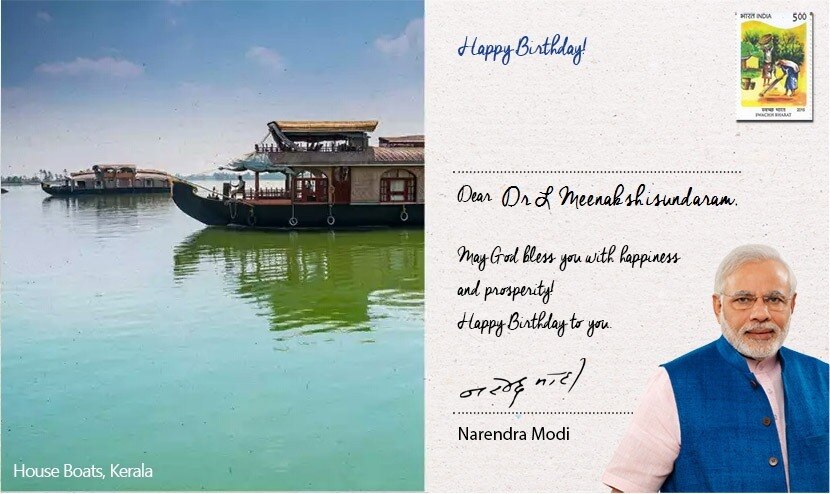 Happy Birthday!
भारत INDIA 500
स्वच्छ भारत 2015
SWACHH BHARAT
Dear Dr L Meenakshisundaram,
May God bless you with happiness
and prosperity!
Happy Birthday to you.
नरेन्द्र मोदी
Narendra Modi
House Boats, Kerala